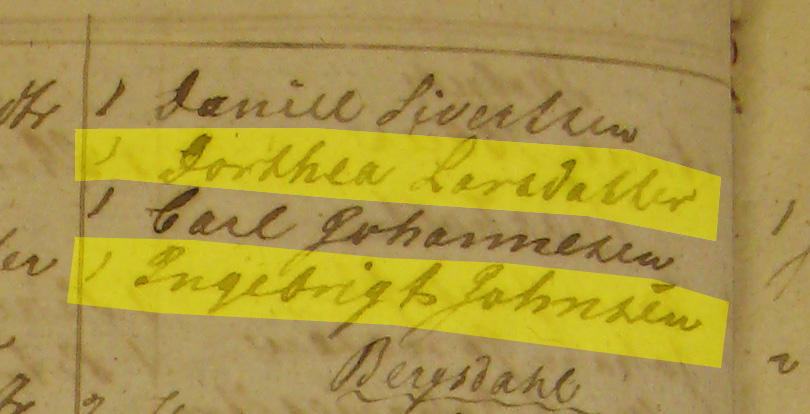 1 Daniel Sivertsen
1 Dorthea Larsdatter
1 Carl Johannesen
1 Ingebrigt Johnsen
Bergsdahl